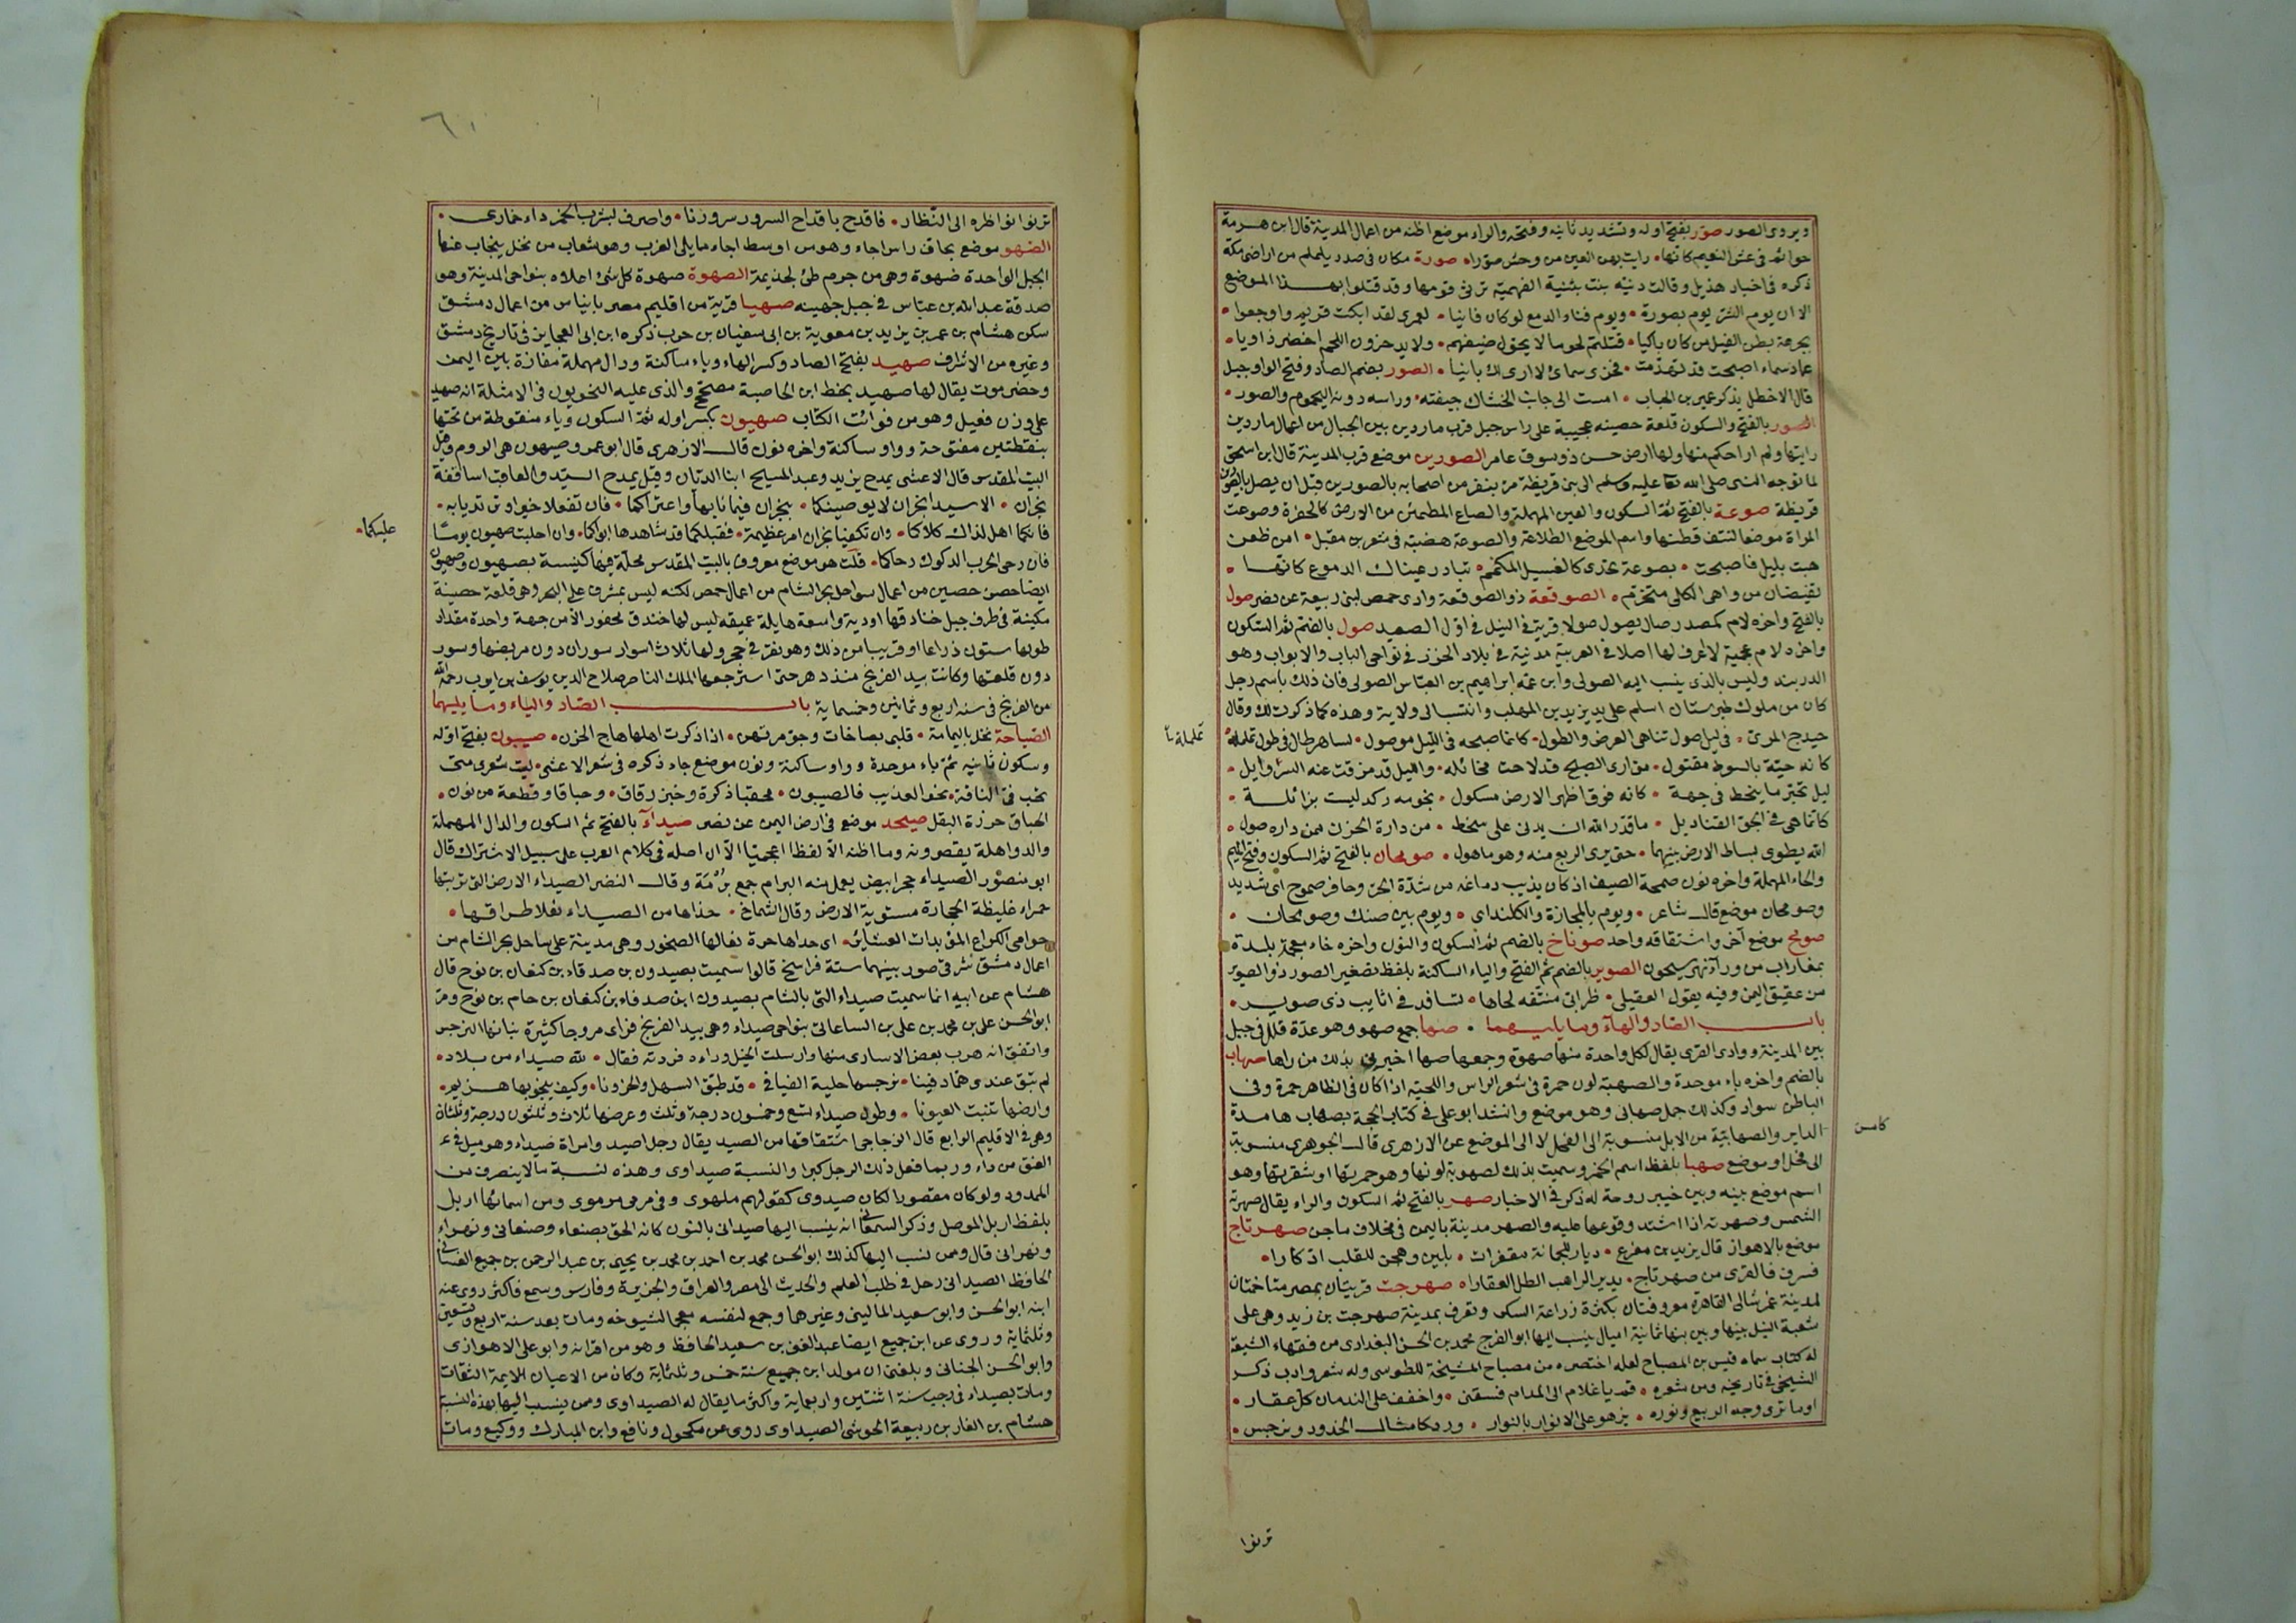 ويروى الصور صوّر بفتح اوله وتشديد ثانيه وفتحه والراء موضع اظنه من اعمال المدينة قال ابن هرمة
حوائم في عين النعيم كانما • رايت بهن العين من وحش صورا • صورة مكان في صدر يلملم من اراضي مكة
ذكره في اخبار هذيل وقالت دنيه بنت بثنية الفهمية ترثي قومها وقد قتلوا بهذا الموضع
الا ان يوم الشر يوم بصورة • ويوم فناء الدمع لو كان فانيا • لعمري لقد ابكت قريم واوجعوا •
بجرعة بطن الفيل من كان باكيا • قتلتم نجوما لا يحول ضيفهم • ولا يدخرون اللحم اخضر ذاويا •
عماد سماء اصبحت قد تهدمت • فخري سماى لا ارى لك بانيا • الصور بضم الصاد وفتح الواو جبل
قال الاخطل يذكر عمير بن الحباب • امست الى جانب الخشاك جيفته • وراسه دونه اليحموم والصور •
الصور بالفتح والسكون قلعة حصينة عجيبة على راس جبل قرب ماردين بين الجبال من اعمال ماردين
رايتها ولم ار احكم منها ولها ارض حسن ذو سوق عامر الصورين موضع قرب المدينة قال ابن اسحق
لما توجه النبي صلى الله تعا عليه وسلم الى بني قريظة مر بنفر من اصحابه بالصورين قبل ان يصل بالصورين
قريظة صوعة بالفتح ثم السكون والعين المهملة والصاع المطمئن من الارض كالحفرة وصوعت
المراة موضعا لتندف قطنها واسم الموضع الصاعة والصوعة هضبة في شعر بن مقبل • امن ظعن
هبت بليل فاصبحت • بصوعة تحدى كالفسيل المكمم • تبادر عيناك الدموع كانها •
تفيضان من واهي الكلى متخرم • الصوقعة ذو الصوقعة وادي حمص لبني ربيعة عن نصر صول
بالفتح واخره لام كمصدر صال يصول صولا قرية في النيل في اول الصعيد صول بالضم ثم السكون
واخره لام عجمية لا اعرف لها اصلا في العربية مدينة في بلاد الخزر في نواحي الباب والابواب وهو
الدربند وليس بالذي ينسب اليه الصولي وابن عمه ابراهيم بن العباس الصولي فان ذلك باسم رجل
كان من ملوك طبرستان اسلم على يد يزيد بن المهلب وانتسب الى ولاية وهذه كما ذكرت لك وقال
حيدج المرى • في ليل صول تناهى العرض والطول • كانما صبحه في الليل موصول • لساهر طال في طول تململه
كانه حية بالسوط مقتول • متى ارى الصبح قد لاحت مخائله • والليل قد مزقت عنه السراويل •
ليل تحير ما ينحط في جهة • كانه فوق ظهر الارض مسكول • نجومه ركد ليست بزائلة •
كانما هي في الجو القناديل • ما قدر الله ان يدنى على سخط • من داره الحزن ممن داره صول •
الله يطوى بساط الارض بينهما • حتى يرى الربع منه وهو ماهول • صومحان بالفتح ثم السكون وفتح الميم
والحاء المهملة واخره نون صمحة الصيف اذ كان يذيب دماغه من شدة الحر وحافر صموح اى شديد
وصومحان موضع قال شاعر • ويوم بالمجازة والكلندى • ويوم بين صنك وصومحان •
صومح موضع آخر واشتقاقه واحد صوناخ بالضم ثم السكون والنون واخره خاء معجمة بلدة
بفاراب من ورآء نهر سيحون الصوير بالضم ثم الفتح والياء الساكنة بلفظ تصغير الصور ذو الصوير
من عقيق اليمن وفيه يقول العقيلي • ظرابى منتفة لحاها • تسافد في اثايب ذي صوير •
باب الصاد والهآء وما يليهما • صها جمع صهو وهو عدة قلل في جبل
بين المدينة ووادي القرى يقال لكل واحدة منها صهوة وجمعها صها اخبرني بذلك من راها صهاب
بالضم واخره باء موحدة والصهبة لون حمرة في شعر الراس واللحية اذا كان في الظاهر حمرة وفي
الباطن سواد وكذلك جمل صهابي وهو موضع وانشد ابو علي في كتاب الحجة بصهاب هامدة
الداير والصهابية من الابل منسوبة الى الفحل لا الى الموضع عن الازهري قال الجوهري منسوبة
الى فحل او موضع صهبا بلفظ اسم الخمر وسميت بذلك لصهوبة لونها وهو حمرتها او شقرتها وهو
اسم موضع بينه وبين خيبر روحة له ذكر في الاخبار صهر بالفتح ثم السكون والراء يقال صهرته
الشمس وصهرته اذا اشتد وقوعها عليه والصهر مدينة باليمن في مخلاف ماجن صهرتاج
موضع بالاهواز قال يزيد بن مفرغ • ديار للجمانة مقفرات • بلين وهجن للقلب ادكارا •
فسرق فالقرى من صهرتاج • بدير الراهب الطلل القفارا • صهرجت قريتان بمصر متاخمتان
لمدينة غمر شمالى القاهرة معروفتان بكثرة زراعة السكر وتعرف بمدينة صهرجت بن زيد وهي على
شعبة النيل بينها وبين بنها ثمانية اميال ينسب اليها ابو الفرج محمد بن الحسن البغدادي من فقهاء الشيعة
له كتاب سماه قيس بن المصباح لعله اختصره من مصباح المشيخة للطوسي وله شعر وادب ذكر
الشيخي في تاريخه ومن شعره • قم يا غلام الى المدام فسقني • واخفف على الندمان كل عقار •
اوما ترى وجه الربيع ونوره • يزهو على الانوار بالنوار • ورد كامثال الخدود ونرجس •
تململه
كامن
ترنوا
٦١
ترنوا نواظره الى النظار • فاقدح باقداح السرور سرورنا • واصرف بشرب الخمر داء خماري •
الضهو موضع بحاق راس اجاء وهو من اوسط اجاء مما يلي الغرب وهو شعاب من نخل ينجاب عنها
الجبل الواحدة ضهوة وهي من جرم طئ لجذيمة الصهوة صهوة كل شئ اعلاه بنواحي المدينة وهو
صدقة عبدالله بن عباس في جبل جهينه صهيا قرية من اقليم مصر بانياس من اعمال دمشق
سكن هشام بن عمر بن يزيد بن معوية بن ابي سفيان بن حرب ذكره ابن ابي العجايز في تاريخ دمشق
وغيره من الاشراف صهيد بفتح الصاد وكسر الهاء وياء ساكنة ودال مهملة مفازة بين اليمن
وحضرموت يقال لها صهيد بخط ابن الحاصبة مصحح والذي عليه النحويون في الامثلة انه صهيد
على وزن فعيل وهو من فوائت الكتاب صهيون بكسر اوله ثم السكون وياء منقوطة من تحتها
بنقطتين مفتوحة وواو ساكنة واخره نون قال الازهري قال ابو عمرو صيهون هي الروم وقيل
البيت المقدس قال الاعشى يمدح يزيد وعبد المسيح ابنا الديان وقيل يمدح السيد والعاقب اساقفة
نجران • الا سيدا نجران لا يوصينكما • بنجران فيما نابها واعتراكما • فان تفعلا خيرا وترتديا به •
فانكما اهل لذاك كلاكما • وان تكفيا نجران امر عظيمة • فقبلكما قد شاهدها ابواكما • وان احلبت صهيون يوما
فان رحى الحرب الدكوك رحاكما • قلت هو موضع معروف بالبيت المقدس محلة فيها كنيسة بصهيون وصهيون
ايضا حصن حصين من اعمال سواحل بحر الشام من اعمال حمص لكنه ليس بمشرف على البحر وهي قلعة حصينة
مكينة في طرف جبل خنادقها اودية واسعة هايلة عميقه ليس لها خندق محفور الا من جهة واحدة مقدار
طولها ستون ذراعا او قريب من ذلك وهو نقر في حجر ولها ثلاث اسوار سوران دون مربضها وسور
دون قلعتها وكانت بيد الفرنج منذ دهر حتى استرجعها الملك الناصر صلاح الدين يوسف بن ايوب رحمه الله
من الفرنج في سنه اربع وثمانين وخمسماية باب الصاد والياء وما يليهما
الصياحة نخل باليمامة • قلبي بصاخات وجو مرتهن • اذا ذكرت اهلها هاج الحزن • صيبون بفتح اوله
وسكون ثانيه ثم باء موحدة وواو ساكنة ونون موضع جاء ذكره في شعر الاعشى • ليت شعرى متى
تخب في الناقة • نحو العذيب فالصيبون • محقبا ذكرة وخبز رقاق • وحباقا وقطعة من نون •
الحباق حرزة البقل صيحد موضع في ارض اليمن عن نصر صيدآء بالفتح ثم السكون والدال المهملة
والمد واهله يقصرونه وما اظنه الا لفظا اعجميا الا ان اصله في كلام العرب على سبيل الاشتراك قال
ابو منصور الصيداء حجر ابيض يعمل منه البرام جمع برمة وقال النضر الصيداء الارض التي تربتها
حمراء غليظة الحجارة مستوية الارض وقال الشماخ • حذاها من الصيداء نعلا طراقها •
حوامي الكراع المؤيدات العشائر • اى حداها حرة نعالها الصخور وهي مدينة على ساحل بحر الشام من
اعمال دمشق شرقي صور بينهما ستة فراسخ قالوا سميت بصيدون بن صدقاء بن كنعان بن نوح قال
هشام عن ابيه انما سميت صيداء التي بالشام بصيدون ابن صدقاء بن كنعان بن حام بن نوح ومر
ابو الحسن علي بن محمد بن علي بن الساعاتي بنواحي صيداء وهي بيد الفرنج فراى مروجا كثيرة نباتها النرجس
واتفق انه هرب بعض الاسارى منها وارسلت الخيل وراءه فردته فقال • لله صيداء من بلاد •
لم تبق عندى هما دفينا • نرجسها حلية الفيافي • قد طبق السهل والحزونا • وكيف ينجو بها هزيم •
وارضها تنبت العيونا • وطول صيداء تسع وخمسون درجة وثلث وعرضها ثلاث وثلثون درجة وثلثاة
وهي في الاقليم الرابع قال الزجاجي اشتقاقها من الصيد يقال رجل اصيد وامراة صيداء وهو ميل في
العنق من داء وربما فعل ذلك الرجل كبرا والنسبة صيداوى وهذه نسبة ما لا ينصرف من
الممدود ولو كان مقصورا لكان صيدوى كقولهم ملهوى وفي مرمى مرموى ومن اسمائها اربل
بلفظ اربل الموصل وذكر السمعاني انه ينسب اليها صيداني بالنون كانه الحق بصنعاء وصنعاني وبهراء
وبهراني قال وممن نسب اليها كذلك ابو الحسن محمد بن احمد بن محمد بن يحيى بن عبد الرحمن بن جميع الغساني
الحافظ الصيداني رحل في طلب العلم والحديث الى مصر والعراق والجزيرة وفارس وسمع فاكثر روى عنه
ابنه ابو الحسن وابو سعيد الماليني وغيرهما وجمع لنفسه معجما لشيوخه ومات بعد سنة اربع وتسعين
وثلثماية وروى عن ابن جميع ايضا عبد الغنى بن سعيد الحافظ وهو من اقرانه وابو علي الاهوازى
وابو الحسن الجناني وبلغني ان مولد ابن جميع سنة خمس وثلثماية وكان من الاعيان الايمة الثقات
ومات بصيداء في رجب سنة اثنتين واربعماية واكثر ما يقال له الصيداوى وممن ينسب اليها بهذه النسبة
هشام بن الغاز بن ربيعة الجرشي الصيداوى روى عن مكحول ونافع وابن المبارك ووكيع ومات
عليكما •